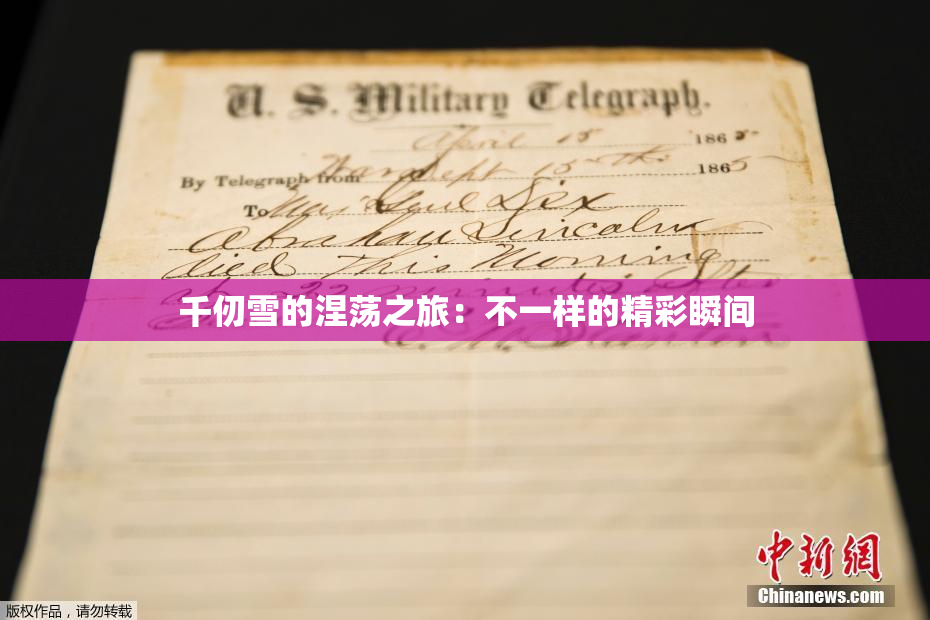 U. S. Military Telegraph.
April 15 1865
By Telegraph from War Dept 15th 1865
To Maj Genl Dix
Abraham Lincoln
died This Morning
at 22 minutes after
千仞雪的涅荡之旅：不一样的精彩瞬间
中新网
Chinanews.com
版权作品，请勿转载